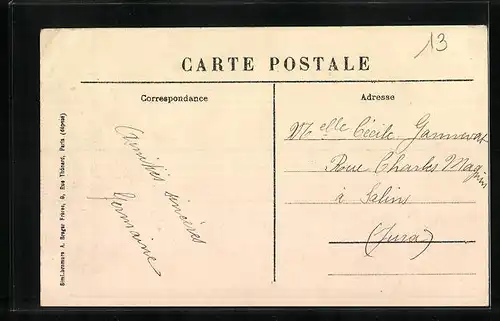 13
CARTE POSTALE
Correspondance
Adresse
Amitiés sincères
Germaine
Melle Cécile
Rue Charles Magnin
à Salins
(Jura)
Simi-bromure A. Breger Frères, 9, Rue Thénard, Paris (déposé)